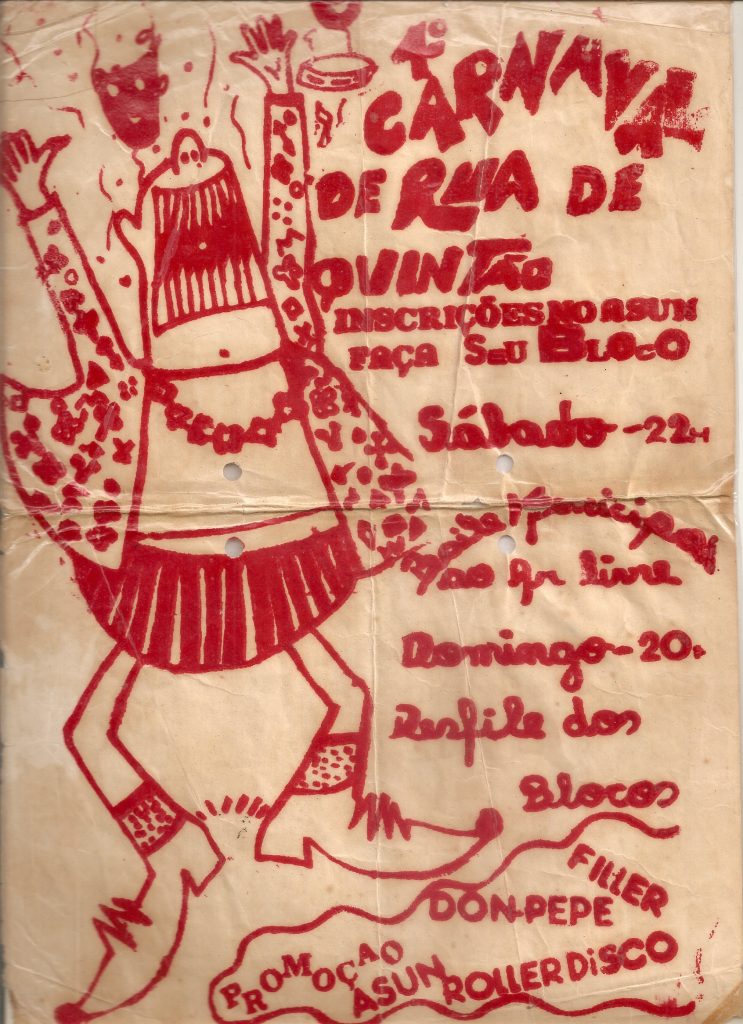 1º
CARNAVAL
DE RUA DE
QUINTÃO
INSCRIÇÕES NO ASUN
FAÇA SEU BLOCO
Sábado - 22H
ao Ar livre
Domingo - 20h
Desfile dos
Blocos
FILLER
DON-PEPE
PROMOÇAO
ASUN ROLLER DISCO